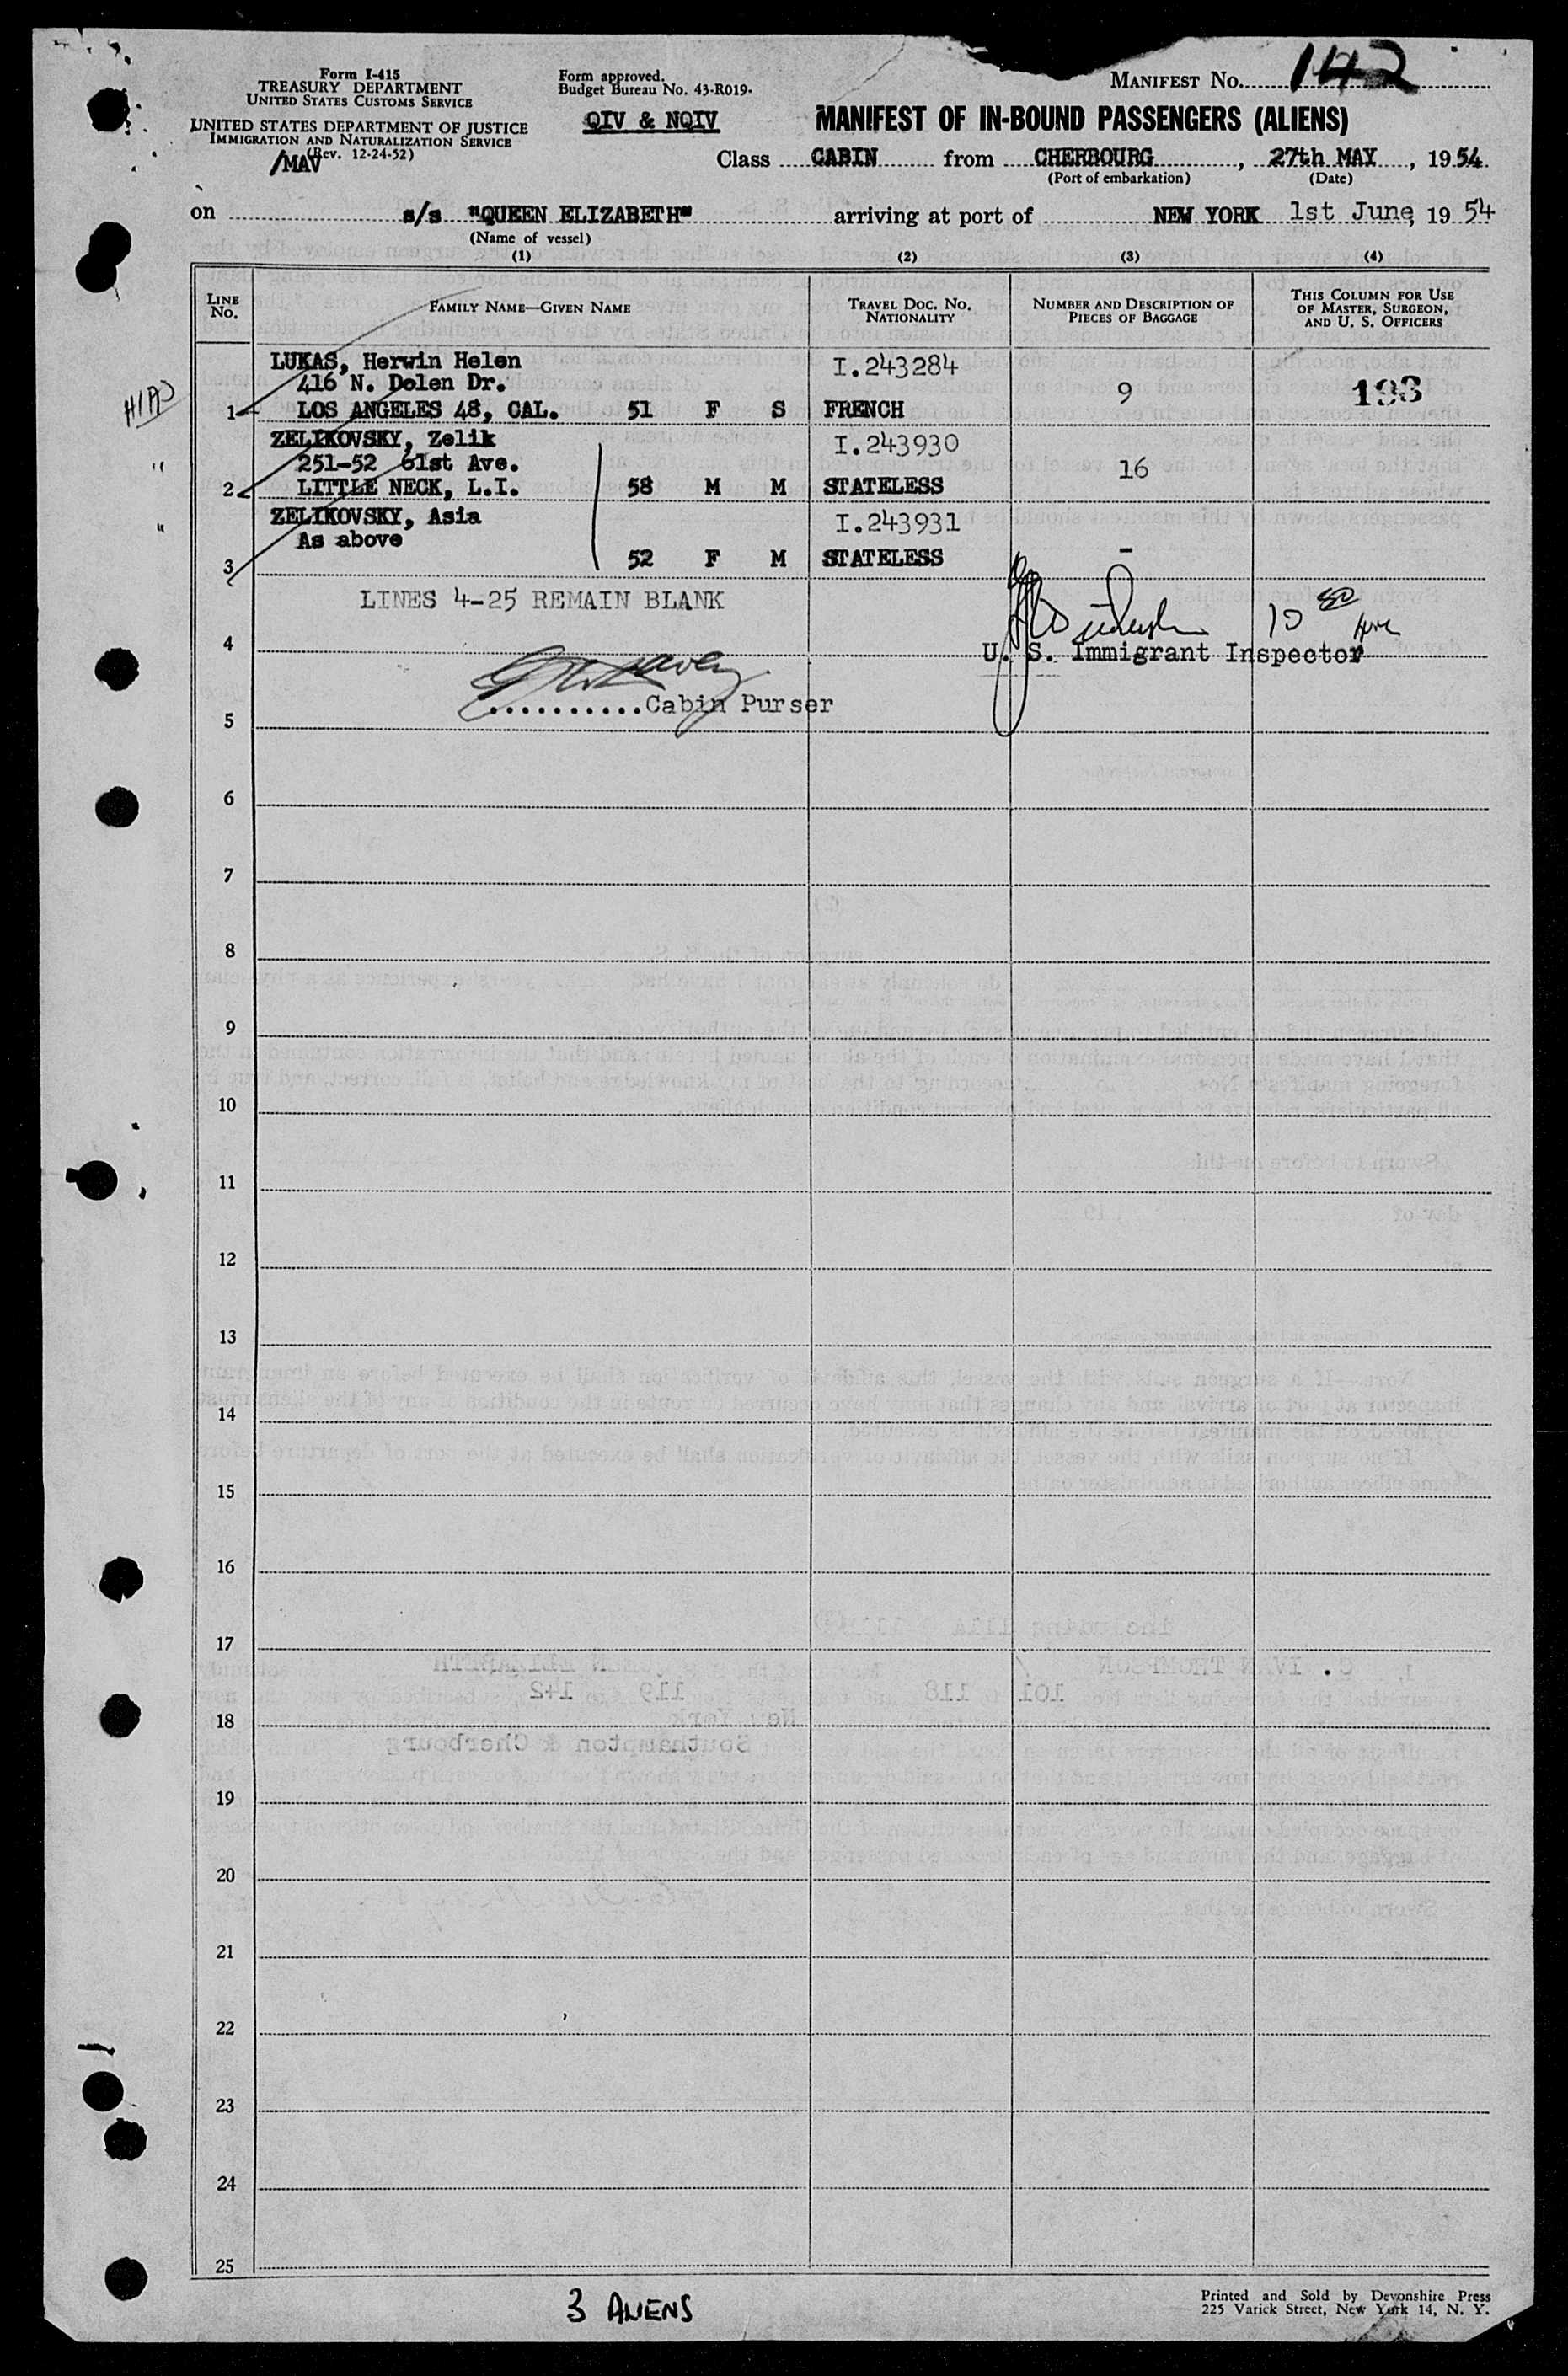 Form I-415
TREASURY DEPARTMENT
UNITED STATES CUSTOMS SERVICE
UNITED STATES DEPARTMENT OF JUSTICE
IMMIGRATION AND NATURALIZATION SERVICE
(Rev. 12-24-52)
/MAV
Form approved.
Budget Bureau No. 43-R019-
QIV & NQIV
MANIFEST NO. 142
MANIFEST OF IN-BOUND PASSENGERS (ALIENS)
Class CABIN from CHERBOURG, 27th MAY, 1954
(Port of embarkation) (Date)
on s/s "QUEEN ELIZABETH" arriving at port of NEW YORK 1st June, 19 54
(Name of vessel)
(1) (2) (3) (4)
LINE NO.
FAMILY NAME—GIVEN NAME
TRAVEL DOC. NO.
NATIONALITY
NUMBER AND DESCRIPTION OF
PIECES OF BAGGAGE
THIS COLUMN FOR USE
OF MASTER, SURGEON,
AND U. S. OFFICERS
HIAS
LUKAS, Herwin Helen I.243284
416 N. Dolen Dr. 9 193
1 LOS ANGELES 48, CAL. 51 F S FRENCH
ZELIKOVSKY, Zelik I.243930
" 251-52 61st Ave. 16
2 LITTLE NECK, L.I. 58 M M STATELESS
" ZELIKOVSKY, Asia I.243931
As above
3 52 F M STATELESS -
LINES 4-25 REMAIN BLANK
4 U. S. Immigrant Inspector
..........Cabin Purser
5
6
7
8
9
10
11
12
13
14
15
16
17
18
19
20
21
22
23
24
25
3 ALIENS
Printed and Sold by Devonshire Press
225 Varick Street, New York 14, N. Y.